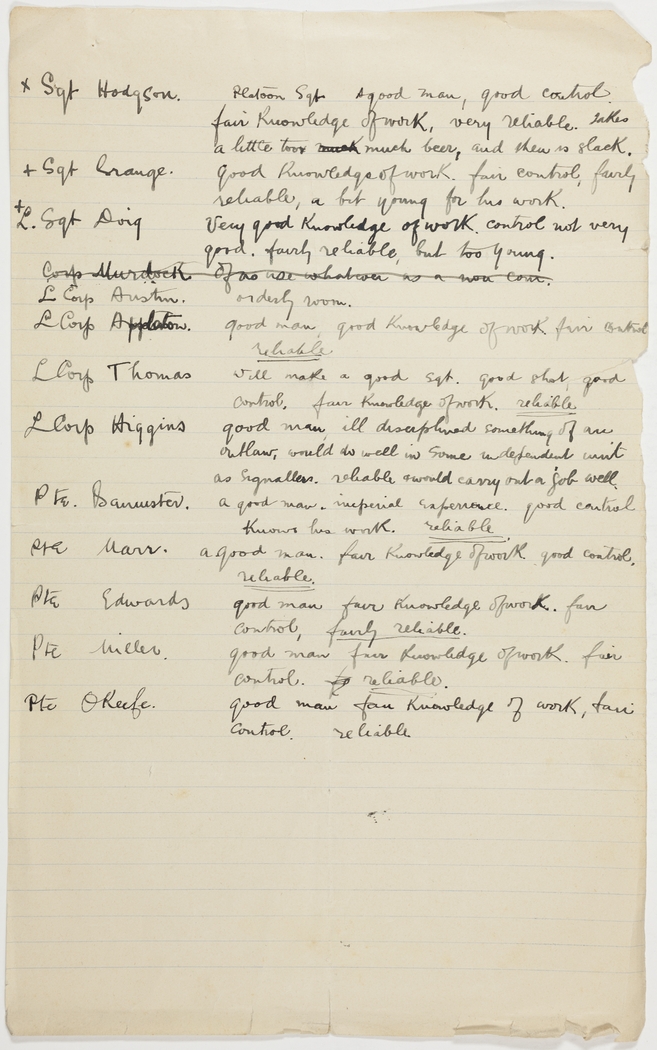 x Sgt Hodgson. Platoon Sgt A good man, good control.
fair Knowledge of work, very reliable. Takes
a little too much much beer, and then is slack.
+ Sgt Grange. good Knowledge of work. fair control, fairly
reliable, a bit young for his work.
+ L. Sgt Doig Very good Knowledge of work. control not very
good. fairly reliable, but too young.
Corp Murdock Of no use whatever as a non com.
L Corp Austin. orderly room.
L Corp Appleton. good man, good Knowledge of work. fair control
reliable
L Corp Thomas will make a good Sgt. good shot, good
control. fair Knowledge of work. reliable
L Corp Higgins good man, ill disciplined something of an
outlaw, would do well in some independent unit
as signallers. reliable & would carry out a job well.
Pte. Bannister. a good man. imperial experience. good control
Knows his work. reliable.
Pte Marr. a good man. fair Knowledge of work good control.
reliable.
Pte Edwards good man fair Knowledge of work. fair
control, fairly reliable.
Pte Miller. good man fair Knowledge of work. fair
control. reliable.
Pte OKeefe. good man fair Knowledge of work, fair
control. reliable